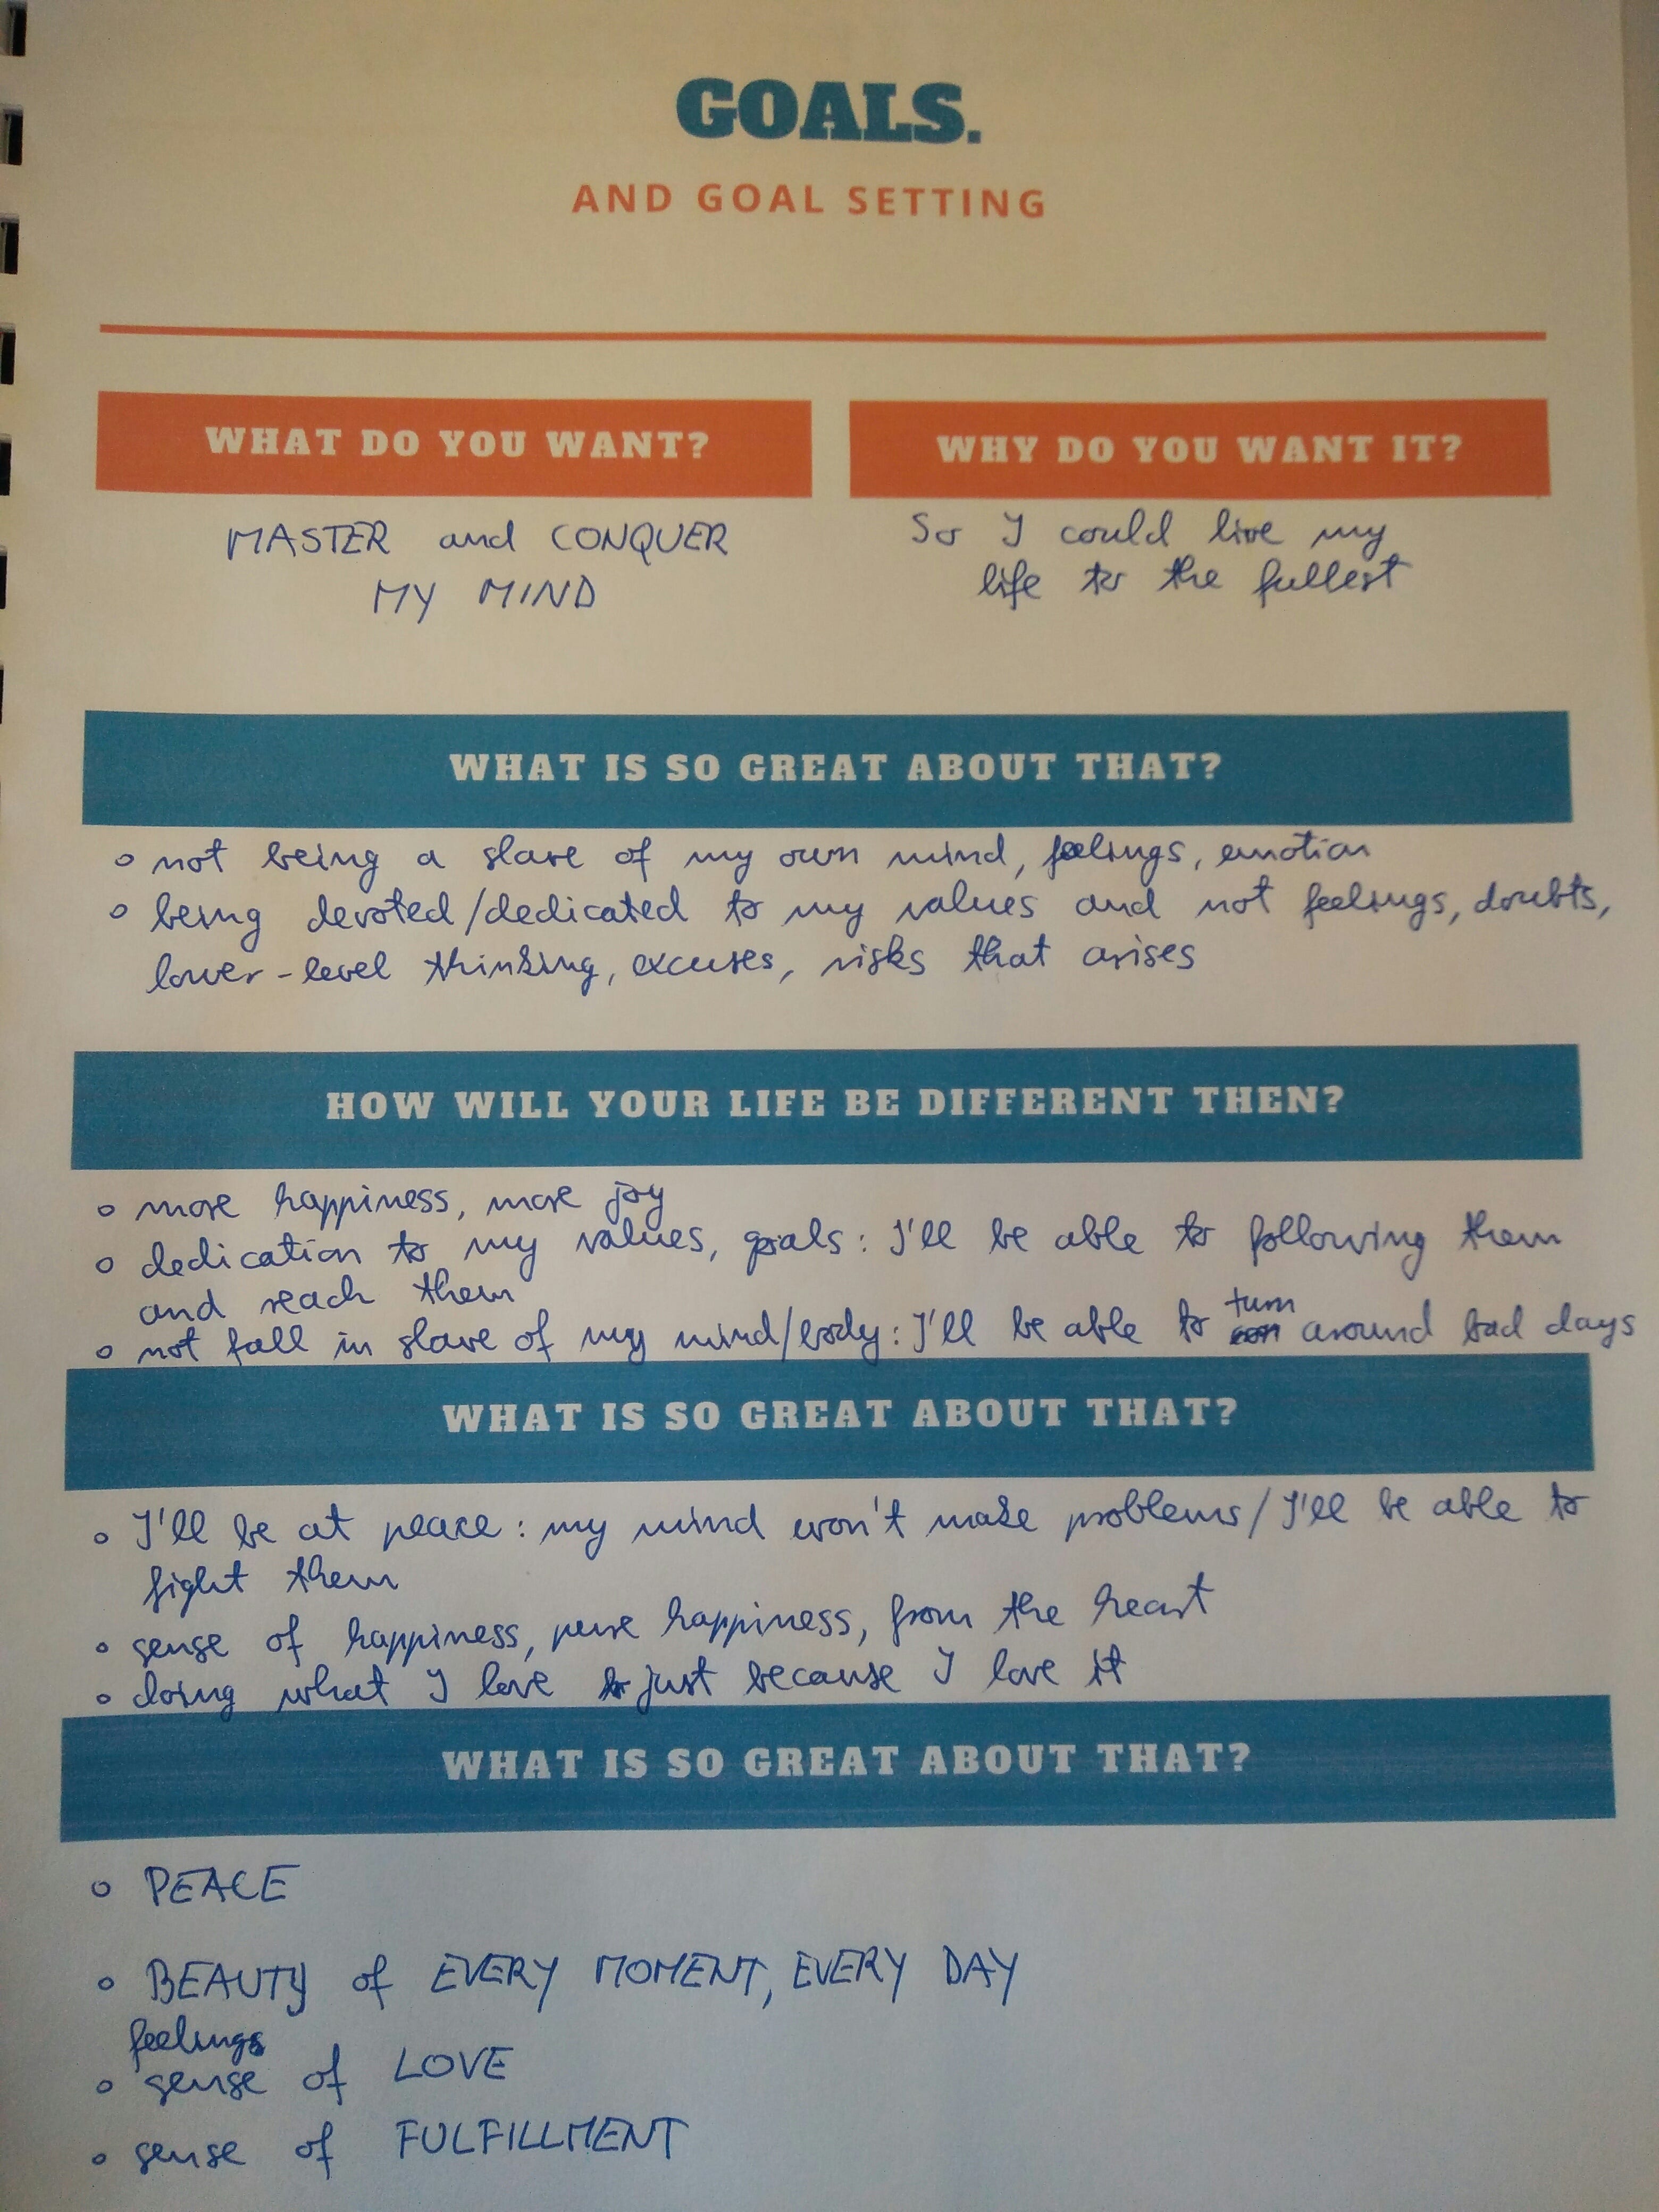 GOALS.
AND GOAL SETTING
WHAT DO YOU WANT?
WHY DO YOU WANT IT?
MASTER and CONQUER
MY MIND
So I could live my
life to the fullest
WHAT IS SO GREAT ABOUT THAT?
o not being a slave of my own mind, feelings, emotion
o being devoted/dedicated to my values and not feelings, doubts,
lower-level thinking, excuses, risks that arises
HOW WILL YOUR LIFE BE DIFFERENT THEN?
o more happiness, more joy
o dedication to my values, goals: I'll be able to following them
and reach them
o not fall in slave of my mind/body: I'll be able to turn around bad days
WHAT IS SO GREAT ABOUT THAT?
o I'll be at peace: my mind won't make problems/I'll be able to
fight them
o sense of happiness, pure happiness, from the heart
o doing what I love just because I love it
WHAT IS SO GREAT ABOUT THAT?
o PEACE
o BEAUTY of EVERY MOMENT, EVERY DAY
feelings
o sense of LOVE
o sense of FULFILLMENT